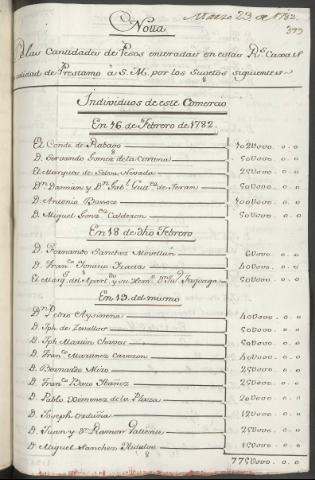 Marzo 23 de 1782.
Notta
de las Cantidades de Pesos enteradas en estas Rs. Caxas
calidad de Prestamo à S. M. por los Sugetos siguientes
Individuos de este Comercio
En 16 de Febrero de 1782.
El Conde de Rabago
D. Servando Gomez de la Cortina 50U000. 0. 0
El Marques de Selva Nevada 25U000. 0. 0
Dn. Damian y Dn. Gutt.s de Teran 50U000. 0. 0
D. Antonio Bassoco
D. Miguel Gonz. Calderon 50U000. 0. 0
En 18 de dho Febrero
D. Fernando Sanchez Movellan 6U000. 0. 0
D. Fran.co Ignacio 40U000. 0. 0
El Marq.s del Apart.do y su Herm.o Dn. Fagoaga 50U000. 0. 0
En 19 del mismo
Dn. Pedro Aycinena 40U000. 0. 0
D. Jph de Zevallos 50U000. 0. 0
D. Jph Martin Chavez 50U000. 0. 0
D. Fran.co Martinez Cavezon 40U000. 0. 0
D. Bernardo 25U000. 0. 0
D. Fran.co Ibañez 25U000. 0. 0
D. Pablo Ximenez de la Plaza 20U000. 0. 0
D. Joseph Orduña 12U000. 0. 0
D. Juan y Dn. Ramon 25U000. 0. 0
D. Miguel Sanchez Hidalgo
775U000. 0. 0